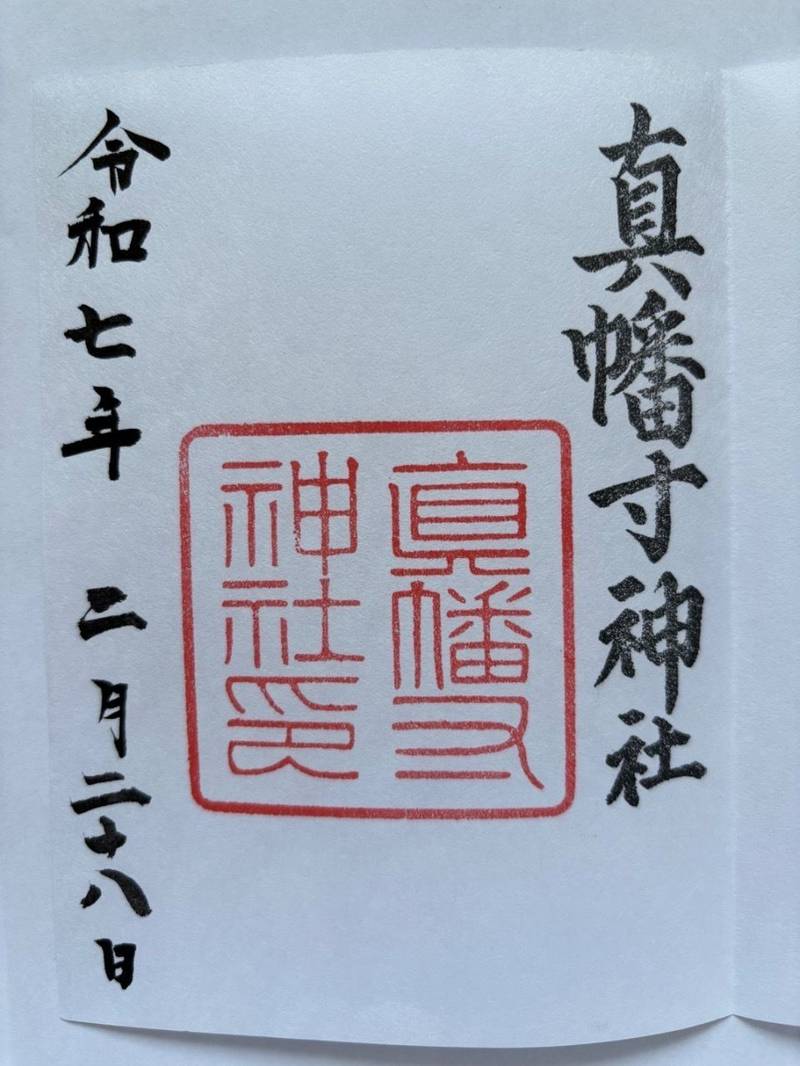 真幡寸神社
真幡寸
神社印
令和七年 二月二十八日